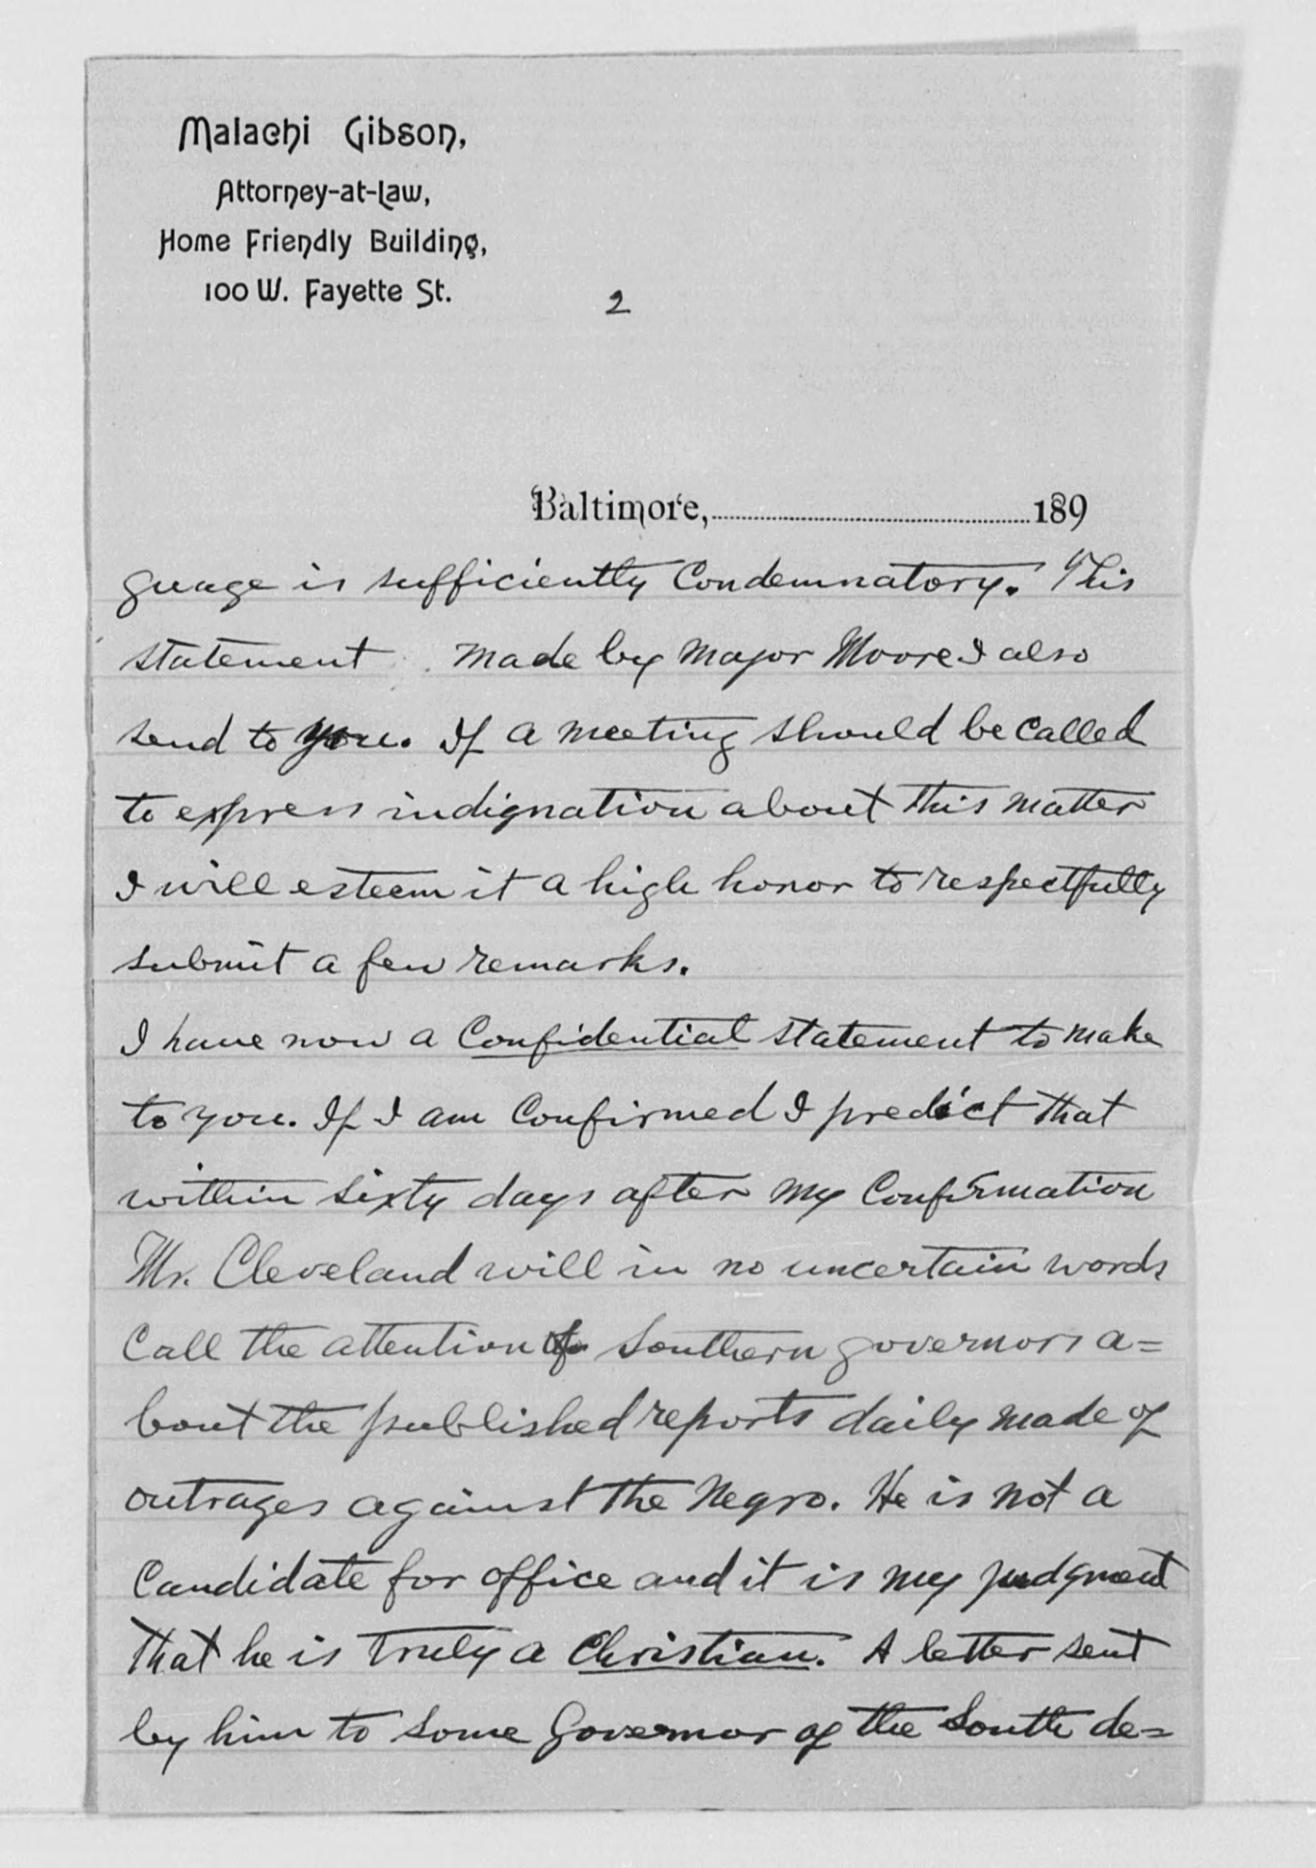 Malachi Gibson,
Attorney-at-Law,
Home Friendly Building,
100 W. Fayette St.
2
Baltimore, 189
guage is sufficiently Condemnatory. This
statement made by Major Moore I also
send to you. If a meeting should be called
to express indignation about this matter
I will esteem it a high honor to respectfully
submit a few remarks.
I have now a Confidential statement to make
to you. If I am Confirmed I predict that
within sixty days after my Confirmation
Mr. Cleveland will in no uncertain words
Call the attention of Southern governors a=
bout the published reports daily made of
outrages against the Negro. He is not a
Candidate for office and it is my judgment
that he is truly a Christian. A letter sent
by him to some Governor of the South de=